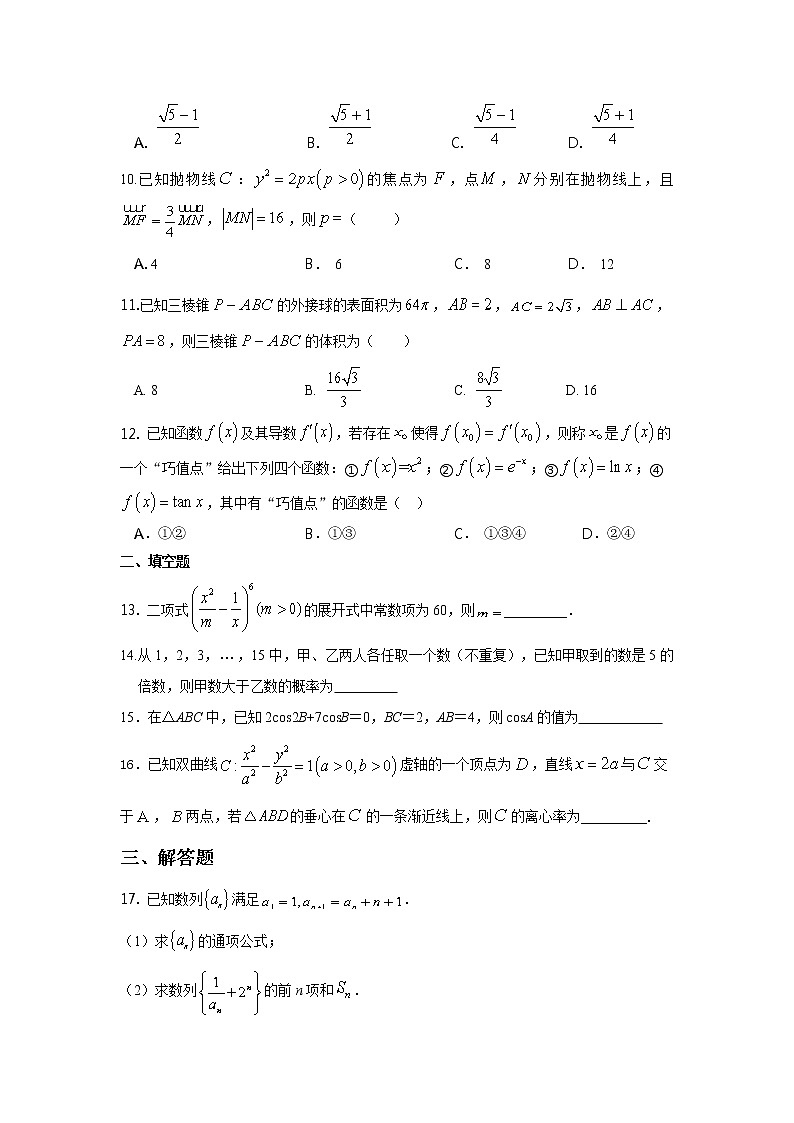 A. \frac{\sqrt{5}-1}{2} B. \frac{\sqrt{5}+1}{2} C. \frac{\sqrt{5}-1}{4} D. \frac{\sqrt{5}+1}{4}
10.已知抛物线 C：y²=2px(p>0)的焦点为 F，点M，N分别在抛物线上，且
\overrightarrow{MF}=\frac{3}{4}\overrightarrow{MN}，|MN|=16，则 p=（ ）
A.4 B. 6 C. 8 D. 12
11.已知三棱锥 P−ABC 的外接球的表面积为64π，AB=2，AC=2√3，AB⊥AC，
PA=8，则三棱锥 P−ABC 的体积为（ ）
A. 8 B. \frac{16\sqrt{3}}{3} C. \frac{8\sqrt{3}}{3} D. 16
12. 已知函数 f(x)及其导数 f′(x)，若存在 x₀使得 f(x₀)=f′(x₀)，则称 x₀是 f(x)的
一个“巧值点”给出下列四个函数：①f(x)=x²；②f(x)=e⁻ˣ；③f(x)=ln x；④
f(x)=tan x，其中有“巧值点”的函数是（ ）
A．①② B．①③ C． ①③④ D．②④
二、填空题
13. 二项式 \left(\frac{x^2}{m}-\frac{1}{x}\right)^6 (m>0)的展开式中常数项为 60，则m=________．
14.从 1，2，3，…，15 中，甲、乙两人各任取一个数（不重复），已知甲取到的数是 5 的
倍数，则甲数大于乙数的概率为________
15．在△ABC 中，已知 2cos2B+7cosB＝0，BC＝2，AB＝4，则 cosA 的值为________
16．已知双曲线C:\frac{x^2}{a^2}-\frac{y^2}{b^2}=1(a>0,b>0)虚轴的一个顶点为 D，直线x=2a与C交
于 A，B两点，若△ABD的垂心在C 的一条渐近线上，则C 的离心率为________．
三、解答题
17. 已知数列{aₙ}满足a₁=1,aₙ₊₁=aₙ+n+1．
（1）求{aₙ}的通项公式；
（2）求数列\left\{\frac{1}{a_n}+2^n\right\}的前 n 项和 Sₙ．